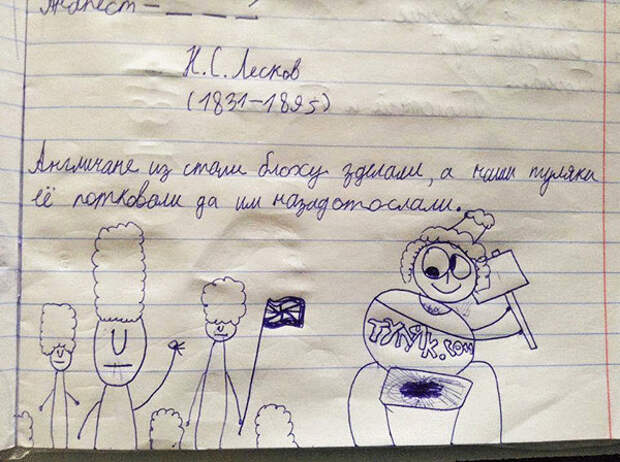 Анапест – _ _ _ ́
Н.С. Лесков
(1831–1895)
Англичане из стали блоху зделали, а наши туляки
её потковали да им назадотослали.
ТУЛЯК.com